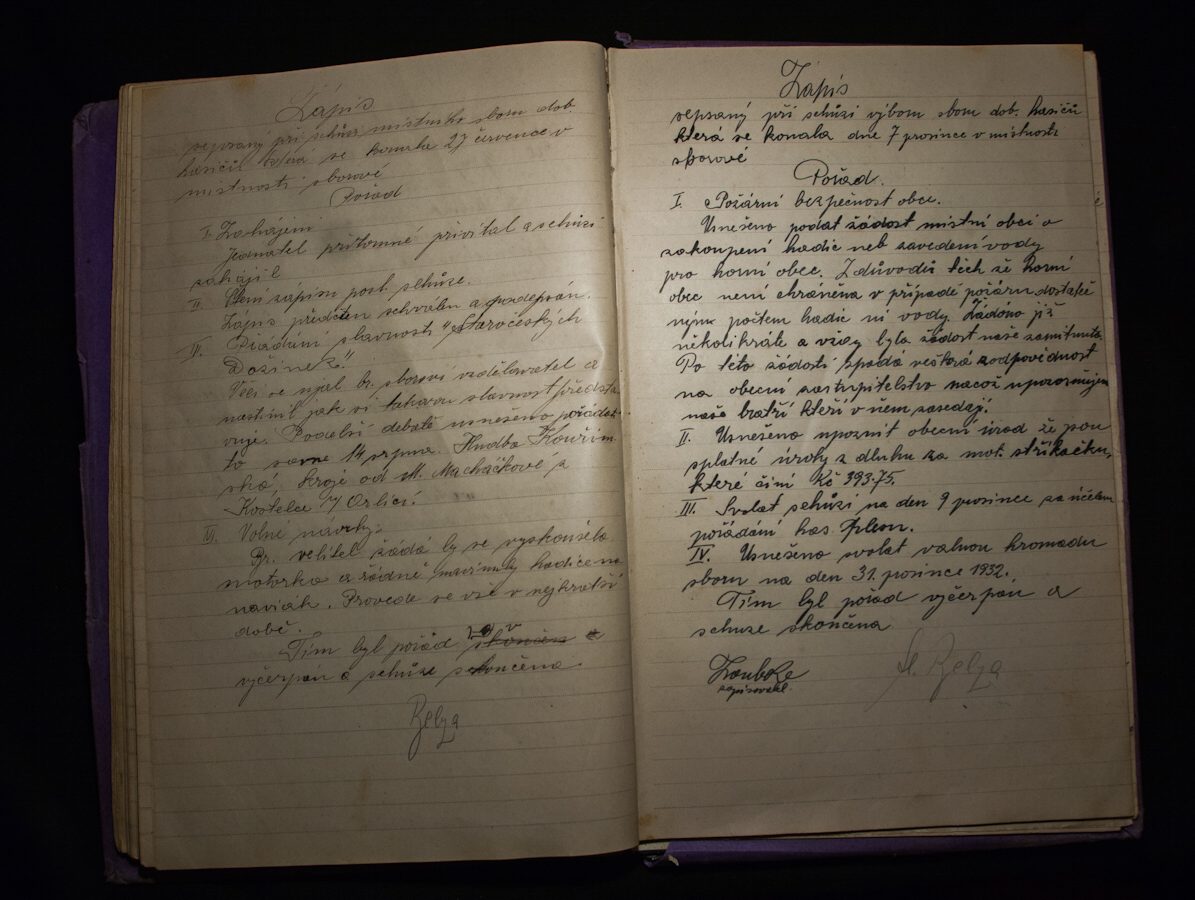 Zápis
sepsaný při schůzi místního sboru dob.
hasičů která se konala 27 července v
místnosti sborové
Pořad
I. Zahájení
Jednatel přítomné přivítal a schůzi
zahájil
II. Čtení zápisu posl. schůze.
Zápis předčten schválen a podepsán.
III. Pořádání slavnosti "Staročeských
Dožínek".
Věci se ujal br. sborový vzdělavatel a
nastínil jak si takovou slavnost představ
uje. Po delší debatě usneseno pořádat
to samé 14 srpna. Hudba Kouřim
ská, kroje od M. Macháčkové z
Kostelce n/ Orlicí.
IV. Volné návrhy.
Br. velitel žádá by se vyskoušela
motorka a řádně hadice na
naviják. Provede se vše v nejkratší
době.
Tím byl pořad skončen a
vyčerpán a schůze skončena
Belza
Zápis
sepsaný při schůzi výboru sboru dob. hasičů
která se konala dne 7 prosince v místnosti
sborové
Pořad.
I. Požární bezpečnost obce.
Usneseno podat žádost místní obci o
zakoupení hadic neb zavedení vody
pro horní obec. Z důvodů těch že horní
obec není chráněna v případě požáru dostateč
ným počtem hadic ni vody. Žádáno již
několikráte a vždy byla žádost naše zamítnuta.
Po této žádosti spadá veškerá zodpovědnost
na obecní zastupitelstvo nacož upozorňujem
naše bratří kteří v něm zasedají.
II. Usneseno upoznit obecní úřad že jsou
splatné úroky z dluhu za mot. stříkačku,
které činí Kč 393.75.
III. Svolat schůzi na den 9 prosince za účelem
pořádání has. plesu.
IV. Usneseno svolat valnou hromadu
sboru na den 31. prosince 1932.
Tím byl pořad vyčerpán a
schuze skončena
Zoubele st. Belza
zapisovatel.